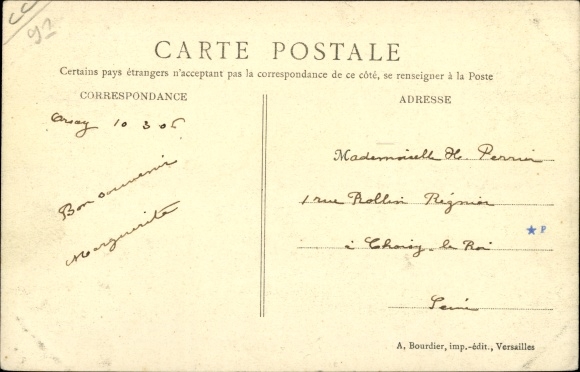 CC
92
CARTE POSTALE
Certains pays étrangers n'acceptant pas la correspondance de ce côté, se renseigner à la Poste
CORRESPONDANCE
Orsay 10 3 05
Bon souvenir
Marguerite
ADRESSE
Mademoiselle H. Perrier
1 rue Rollin Régnier
à Choisy-le-Roi
Seine
P
A. Bourdier, imp.-édit., Versailles